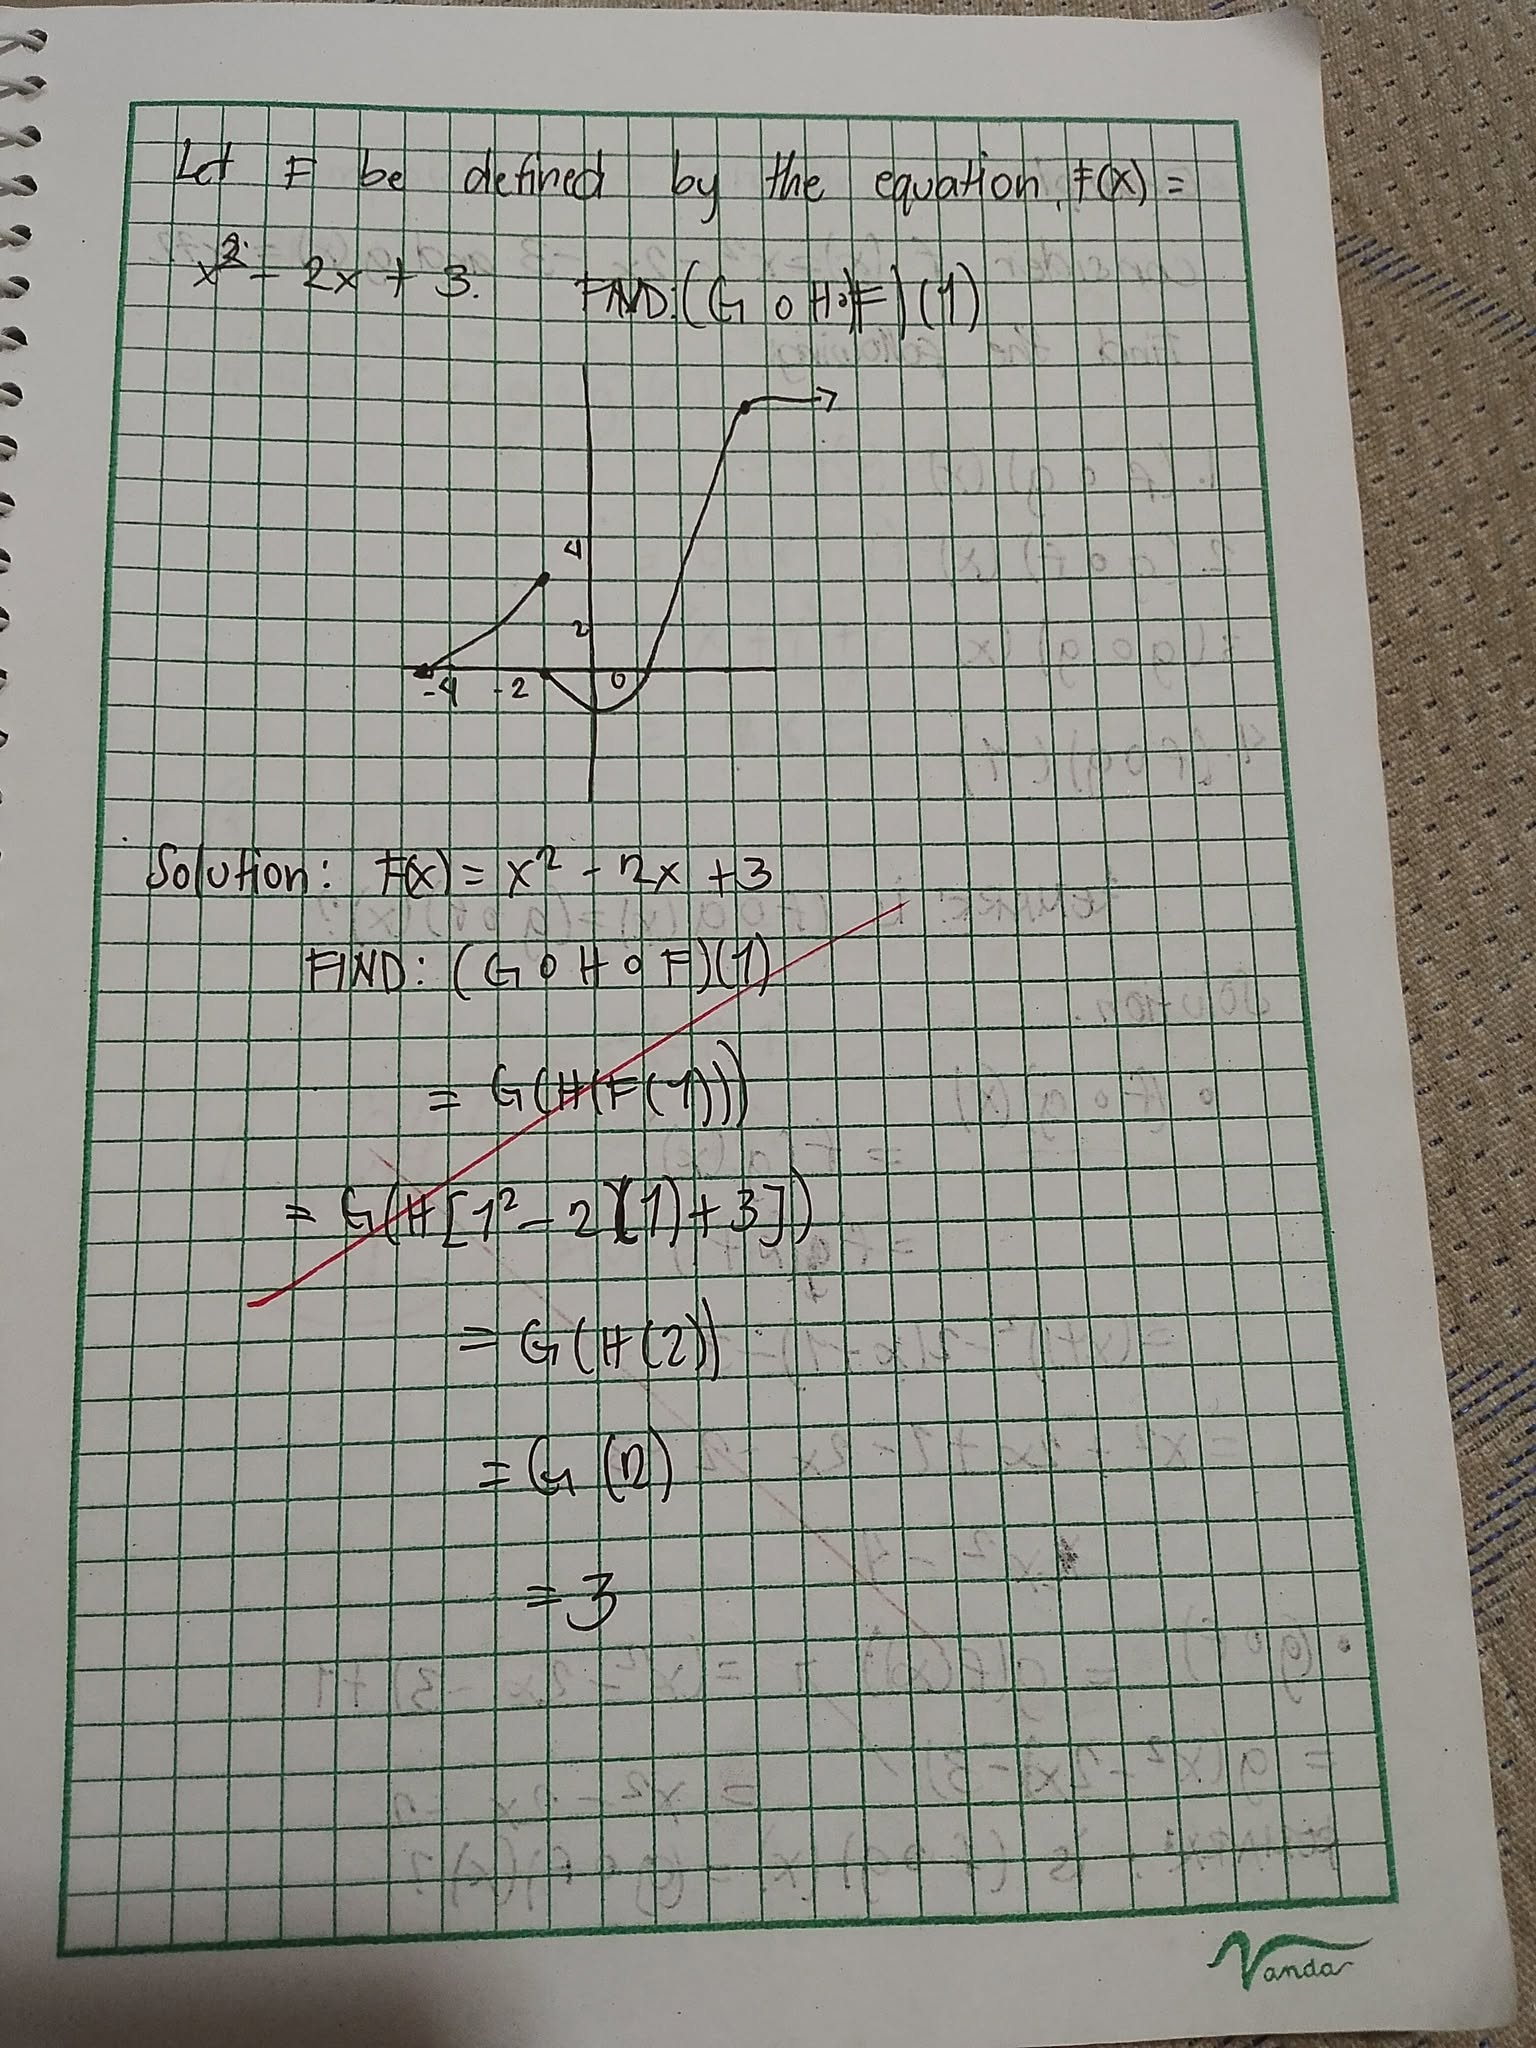 Let F be defined by the equation, F(x) =
x² - 2x + 3. FIND: (G o H o F) (1)
4
2
-4 -2 0
Solution: F(x) = x² - 2x + 3
FIND: (G o H o F)(1)
= G(H(F(1)))
= G(H[1² - 2)(1) + 3])
= G(H(2))
= G(2)
= 3
Vanda